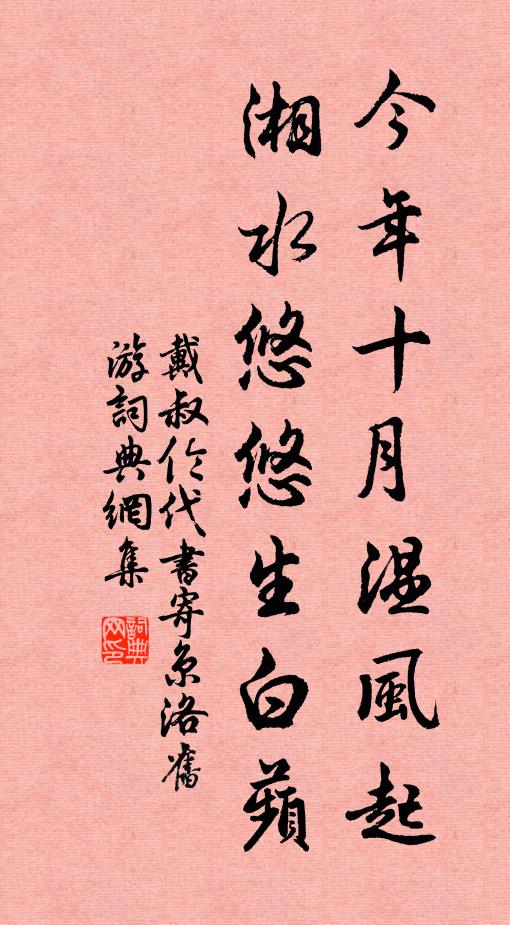 今年十月温風起
湘水悠悠生白蘋
戴叔伦代書寄京洛舊
游詞典網集
詞典网印